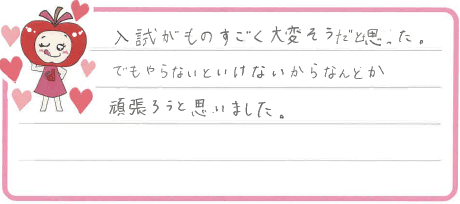 入試がものすごく大変そうだと思った。
でもやらないといけないからなんとか
頑張ろうと思いました。